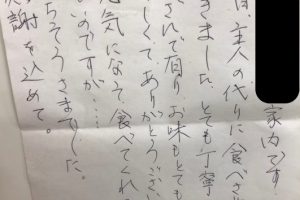 家内です
日、主人の代りに食べさ
きました。とても丁寧
されて居り、お味もとても
しくて、ありがとうござい
元気になって、食べてくれ
いのですが……
ちそうさまでした。
謝を込めて。